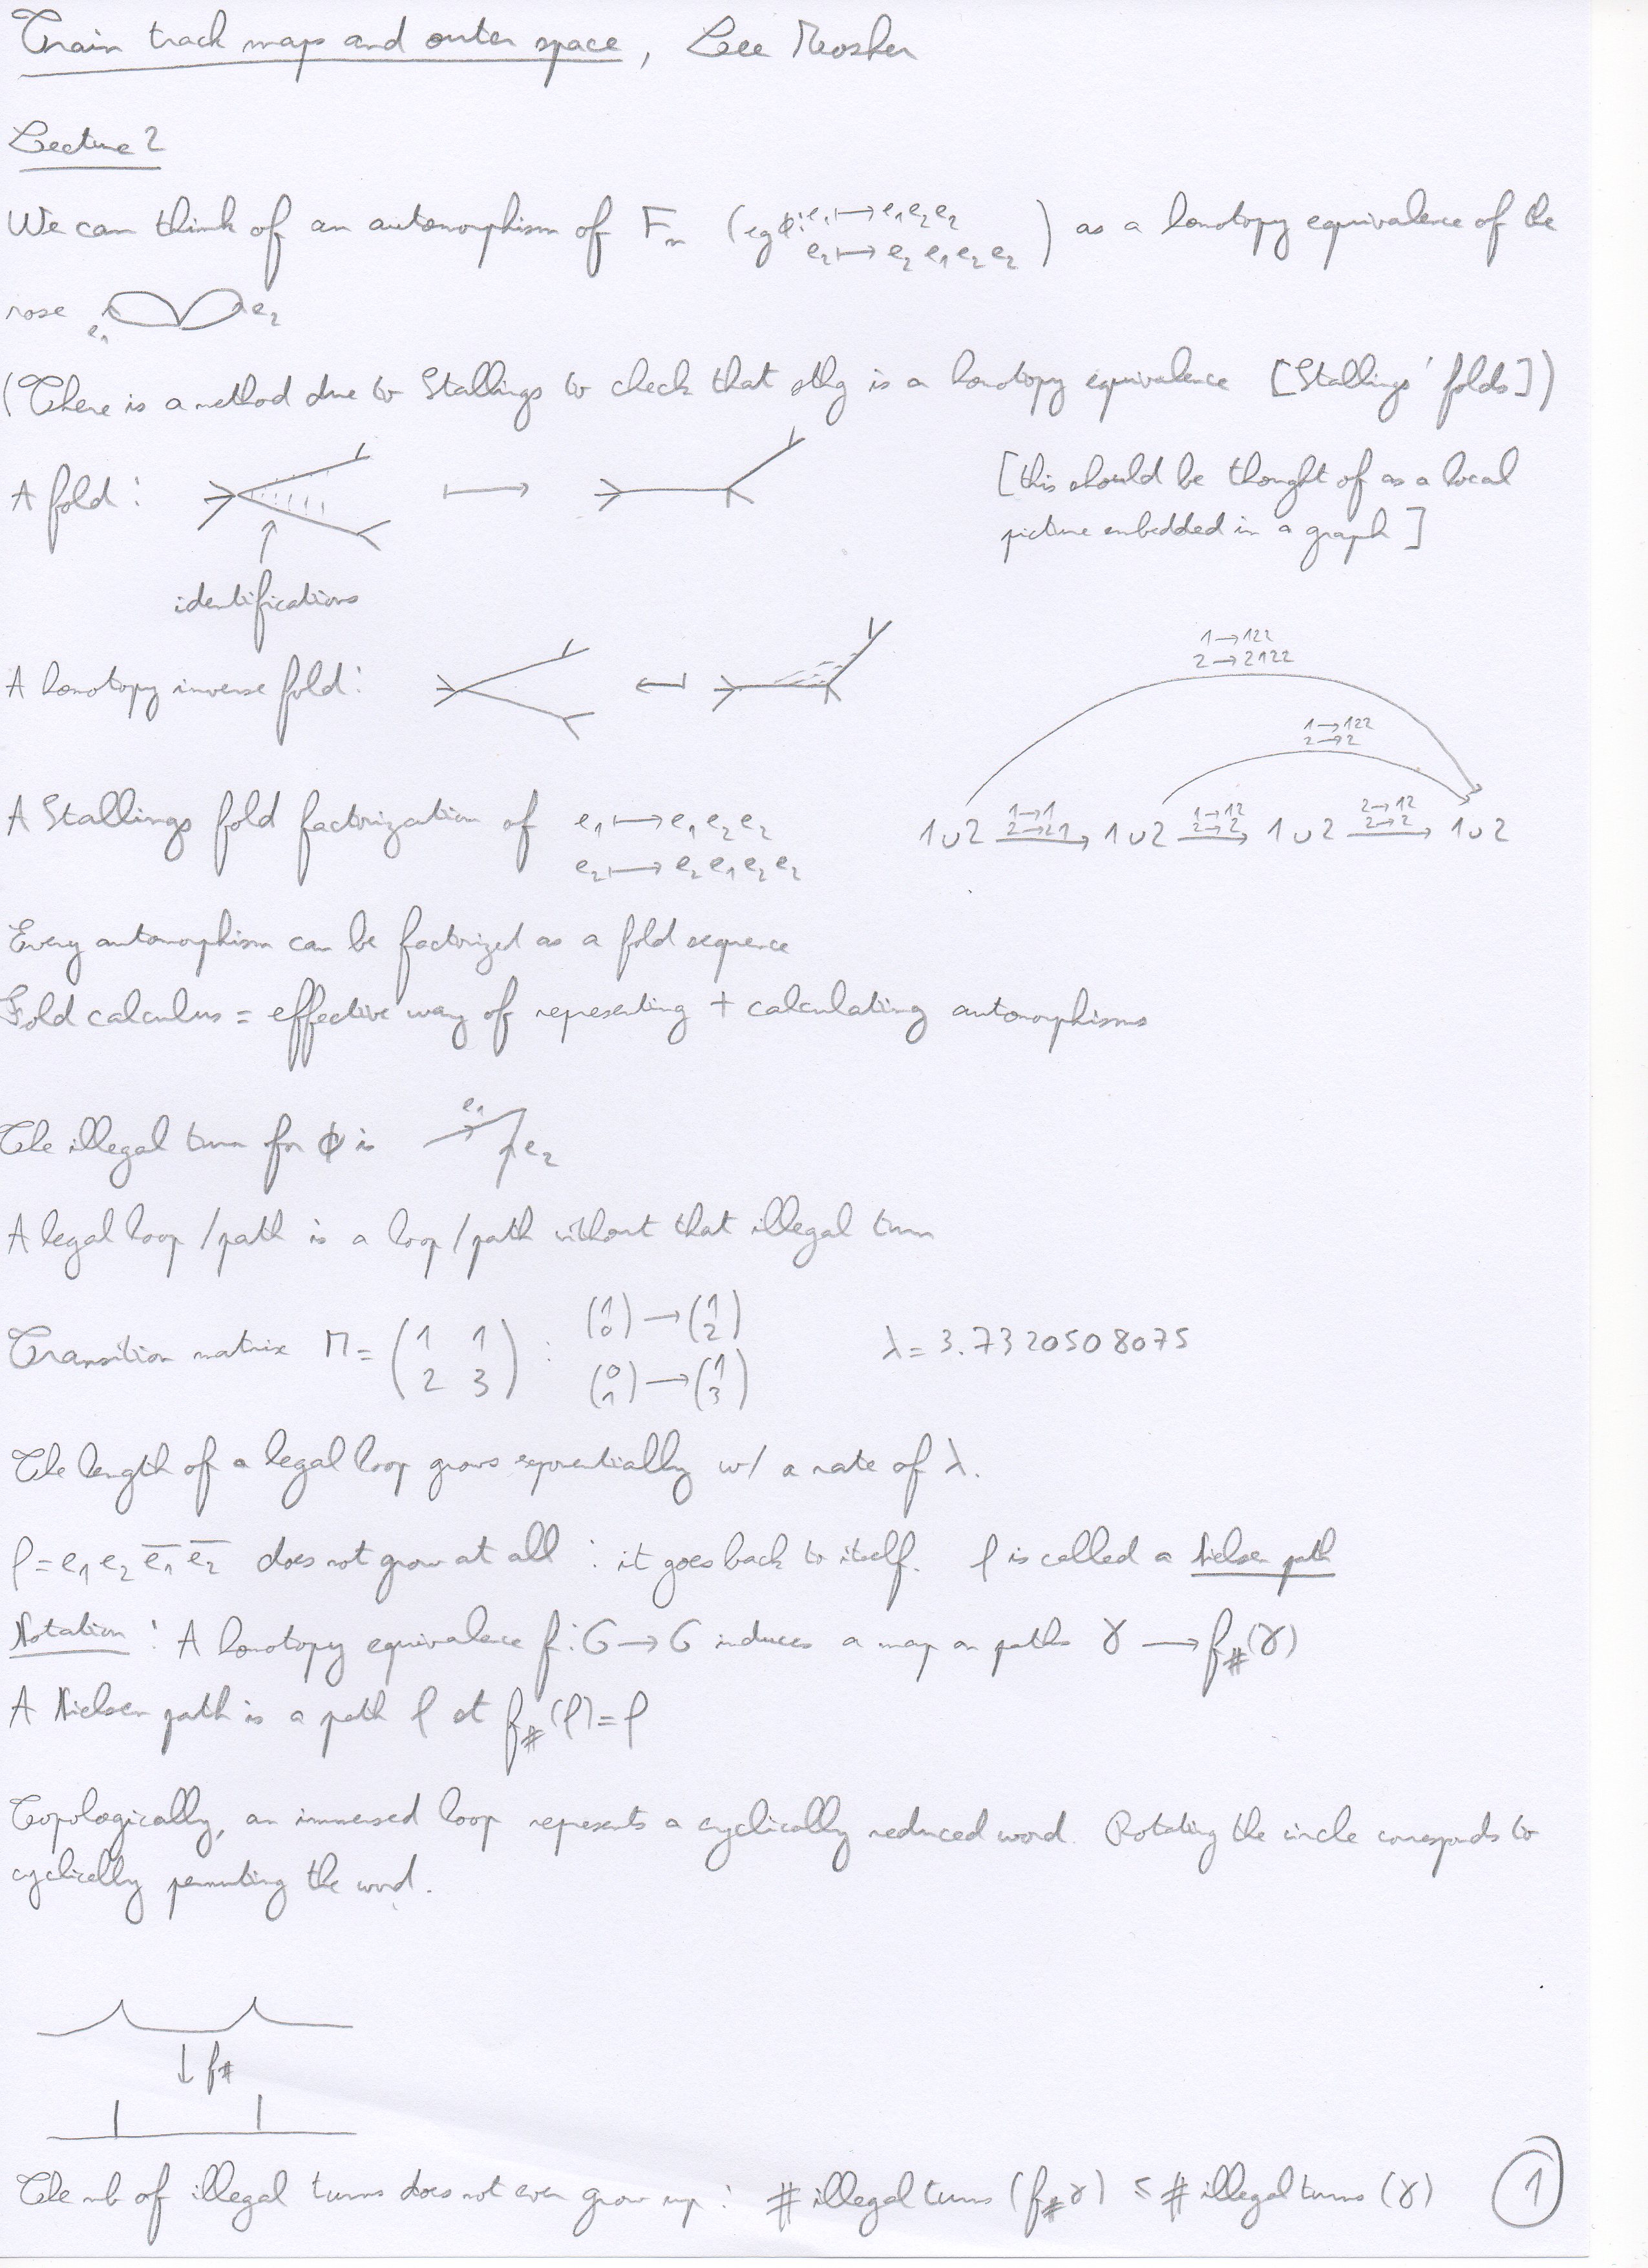 Train track maps and outer space, Lee Mosher
Lecture 2
We can think of an automorphism of Fₙ (eg ϕ: e₁ ↦ e₁e₂e₂
e₂ ↦ e₂e₁e₂e₂) as a homotopy equivalence of the
rose e₁ e₂
(There is a method due to Stallings to check that sthg is a homotopy equivalence [Stallings' folds])
A fold: ↦ [this should be thought of as a local
picture embedded in a graph]
identifications
A homotopy inverse fold:
1→122
2→2122
1→122
2→2
A Stallings fold factorization of e₁ ↦ e₁e₂e₂
e₂ ↦ e₂e₁e₂e₂
1→1 1→12 2→12
2→2 2→2
1∪2 → 1∪2 → 1∪2 → 1∪2
Every automorphism can be factorized as a fold sequence
Fold calculus = effective way of representing + calculating automorphisms
The illegal turn for ϕ is e₁ e₂
A legal loop/path is a loop/path without that illegal turn
Transition matrix M = (1 1
2 3) : (1 0) → (1 2)
(0 1) → (1 3) λ = 3.7320508075
The length of a legal loop grows exponentially w/ a rate of λ.
ρ = e₁e₂e̅₁e̅₂ does not grow at all : it goes back to itself. ρ is called a Nielsen path
Notation : A homotopy equivalence f: G → G induces a map on paths γ → f#(γ)
A Nielsen path is a path ρ st f#(ρ) = ρ
Topologically, an immersed loop represents a cyclically reduced word. Rotating the circle corresponds to
cyclically permuting the word.
↓ f#
The nb of illegal turns does not even grow up : # illegal turns (f#γ) ≤ # illegal turns (γ)
1